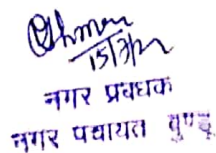 15/7/12
नगर प्रबंधक
नगर पंचायत बुण्डू